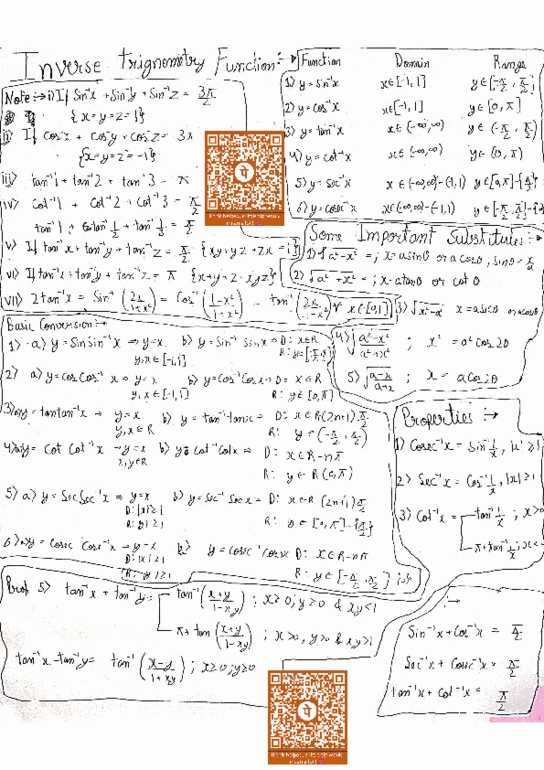 Inverse Trignometry Function:-
Note:→ i) If Sin⁻¹x + Sin⁻¹y + Sin⁻¹z = 3π/2
{x=y=z=1}
ii) If Cos⁻¹x + Cos⁻¹y + Cos⁻¹z = 3π
{x=y=z=-1}
iii) tan⁻¹1 + tan⁻¹2 + tan⁻¹3 = π
iv) Cot⁻¹1 + Cot⁻¹2 + Cot⁻¹3 = π/2
v) If tan⁻¹x + tan⁻¹y + tan⁻¹z = π/2 {xy+yz+zx=1}
vi) If tan⁻¹x + tan⁻¹y + tan⁻¹z = π {x+y+z=xyz}
vii) 2tan⁻¹x = Sin⁻¹(2x/1+x²) = Cos⁻¹(1-x²/1+x²) = tan⁻¹(2x/1-x²) ∀ x∈[0,1]
Function Domain Range
1) y=Sin⁻¹x x∈[-1,1] y∈[-π/2, π/2]
2) y=cos⁻¹x x∈[-1,1] y∈[0,π]
3) y=tan⁻¹x x∈(-∞,∞) y∈(-π/2, π/2)
4) y=cot⁻¹x x∈(-∞,∞) y∈(0,π)
5) y=Sec⁻¹x x∈(-∞,∞)-(-1,1) y∈[0,π]-{π/2}
6) y=cosec⁻¹x x∈(-∞,∞)-(-1,1)
Some Important Substitutes:→
1) √a²-x² = ; x=asinθ or acosθ
2) √a²+x² = ; x=atanθ or cotθ
3) √x²-a² x=asecθ
4) √a²-x²/a²+x² ; x²=a²cos2θ
5) √a-x/a+x ; x=acos2θ
Basic Conversion:→
1) a) y=Sin Sin⁻¹x ⇒ y=x b) y=Sin⁻¹Sinx ⇒ D: x∈R
y,x∈[-1,1]
2) a) y=cos cos⁻¹x ⇒ y=x b) y=Cos⁻¹Cosx ⇒ D: x∈R
y,x∈[-1,1] R: y∈[0,π]
3) a) y=tan tan⁻¹x ⇒ y=x b) y=tan⁻¹tanx = D: x∈R-(2n+1)π/2
y,x∈R R: y=(-π/2, π/2)
4) a) y=Cot Cot⁻¹x → y=x b) y=Cot⁻¹Cotx ⇒ D: x∈R-nπ
x,y∈R R: y∈R(0,π)
5) a) y=Sec Sec⁻¹x ⇒ y=x b) y=Sec⁻¹Secx = D: x∈R-(2n+1)π/2
D: |x|≥1
R: |y|≥1 R: y∈[0,π]-{π/2}
6) a) y=cosec Cosec⁻¹x ⇒ y=x b) y=cosec⁻¹cosecx D: x∈R-nπ
D: |x|≥1
R: |y|≥1
Properties :→
1) Cosec⁻¹x = Sin⁻¹1/x, |x|≥1
2) Sec⁻¹x = Cos⁻¹1/x, |x|≥1
3) Cot⁻¹x = tan⁻¹1/x ; x>0
π+tan⁻¹1/x ; x<
5) tan⁻¹x + tan⁻¹y = tan⁻¹(x+y/1-xy) ; x≥0, y>0 & xy<1
π+tan⁻¹(x+y/1-xy) ; x>0, y>0 & xy>1
tan⁻¹x - tan⁻¹y = tan⁻¹(x-y/1+xy) ; x≥0; y≥0
Sec⁻¹x + Cosec⁻¹x = π/2
tan⁻¹x + Cot⁻¹x = π/2